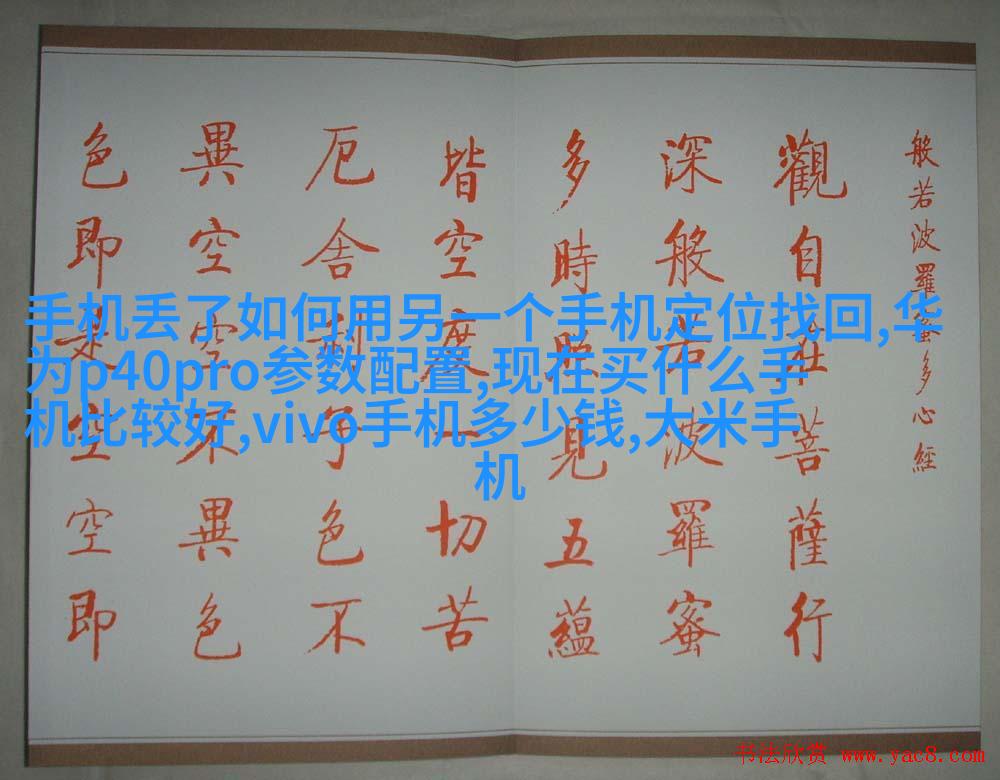 般若波羅蜜多心經
觀自在菩薩行
深般若波羅蜜
多時照見五蘊
皆空度一切苦
厄舎利子色不
異空空不異色
色即是空空即
手机丢了如何用另一个手机定位找回,华
为p40pro参数配置,现在买什么手
机比较好,vivo手机多少钱,大米手
机
书法欣赏 www.yac8.com